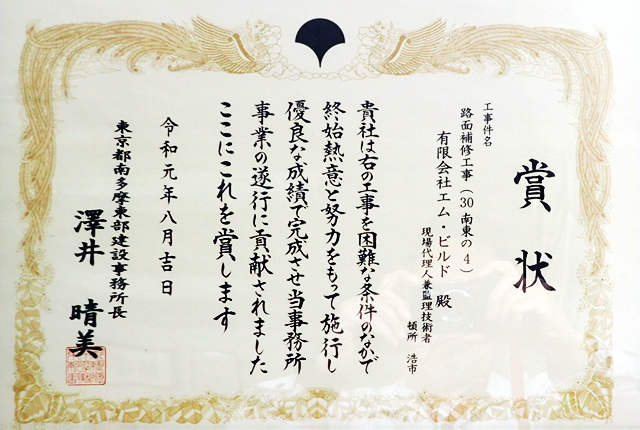 賞状
工事件名
路面補修工事(30南東の4)
有限会社エム・ビルド 殿
現場代理人兼監理技術者
頓所 浩市
貴社は右の工事を困難な条件のなかで
終始熱意と努力をもって施行し
優良な成績で完成させ当事務所
事業の遂行に貢献されました
ここにこれを賞します
令和元年八月吉日
東京都南多摩東部建設事務所長
澤井 晴美